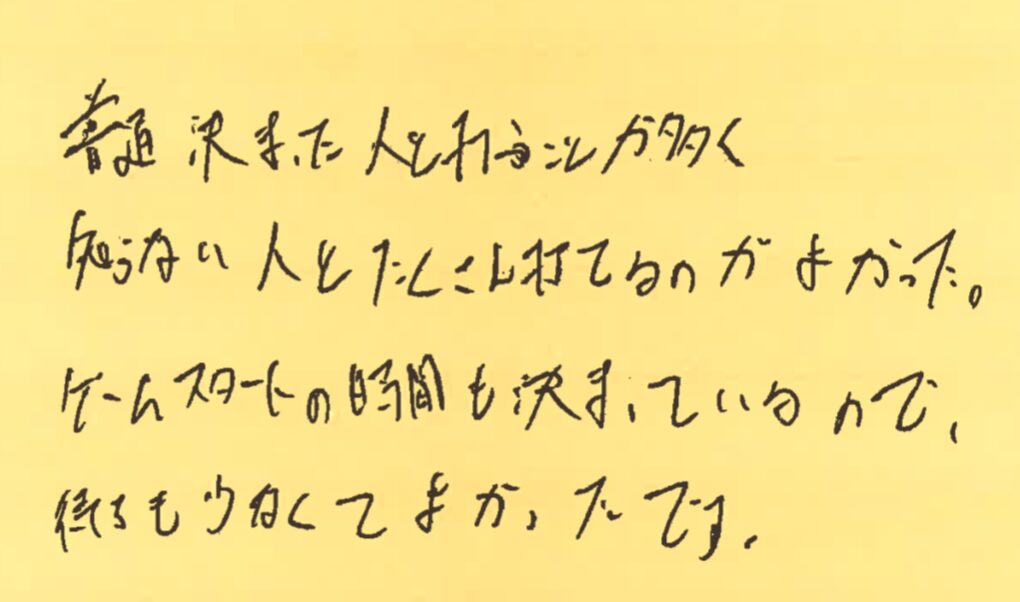 普通決まった人と打つことが多く
知らない人とたくさん打てるのがよかった。
ゲームスタートの時間も決まっているので、
待ちも少なくてよかったです。